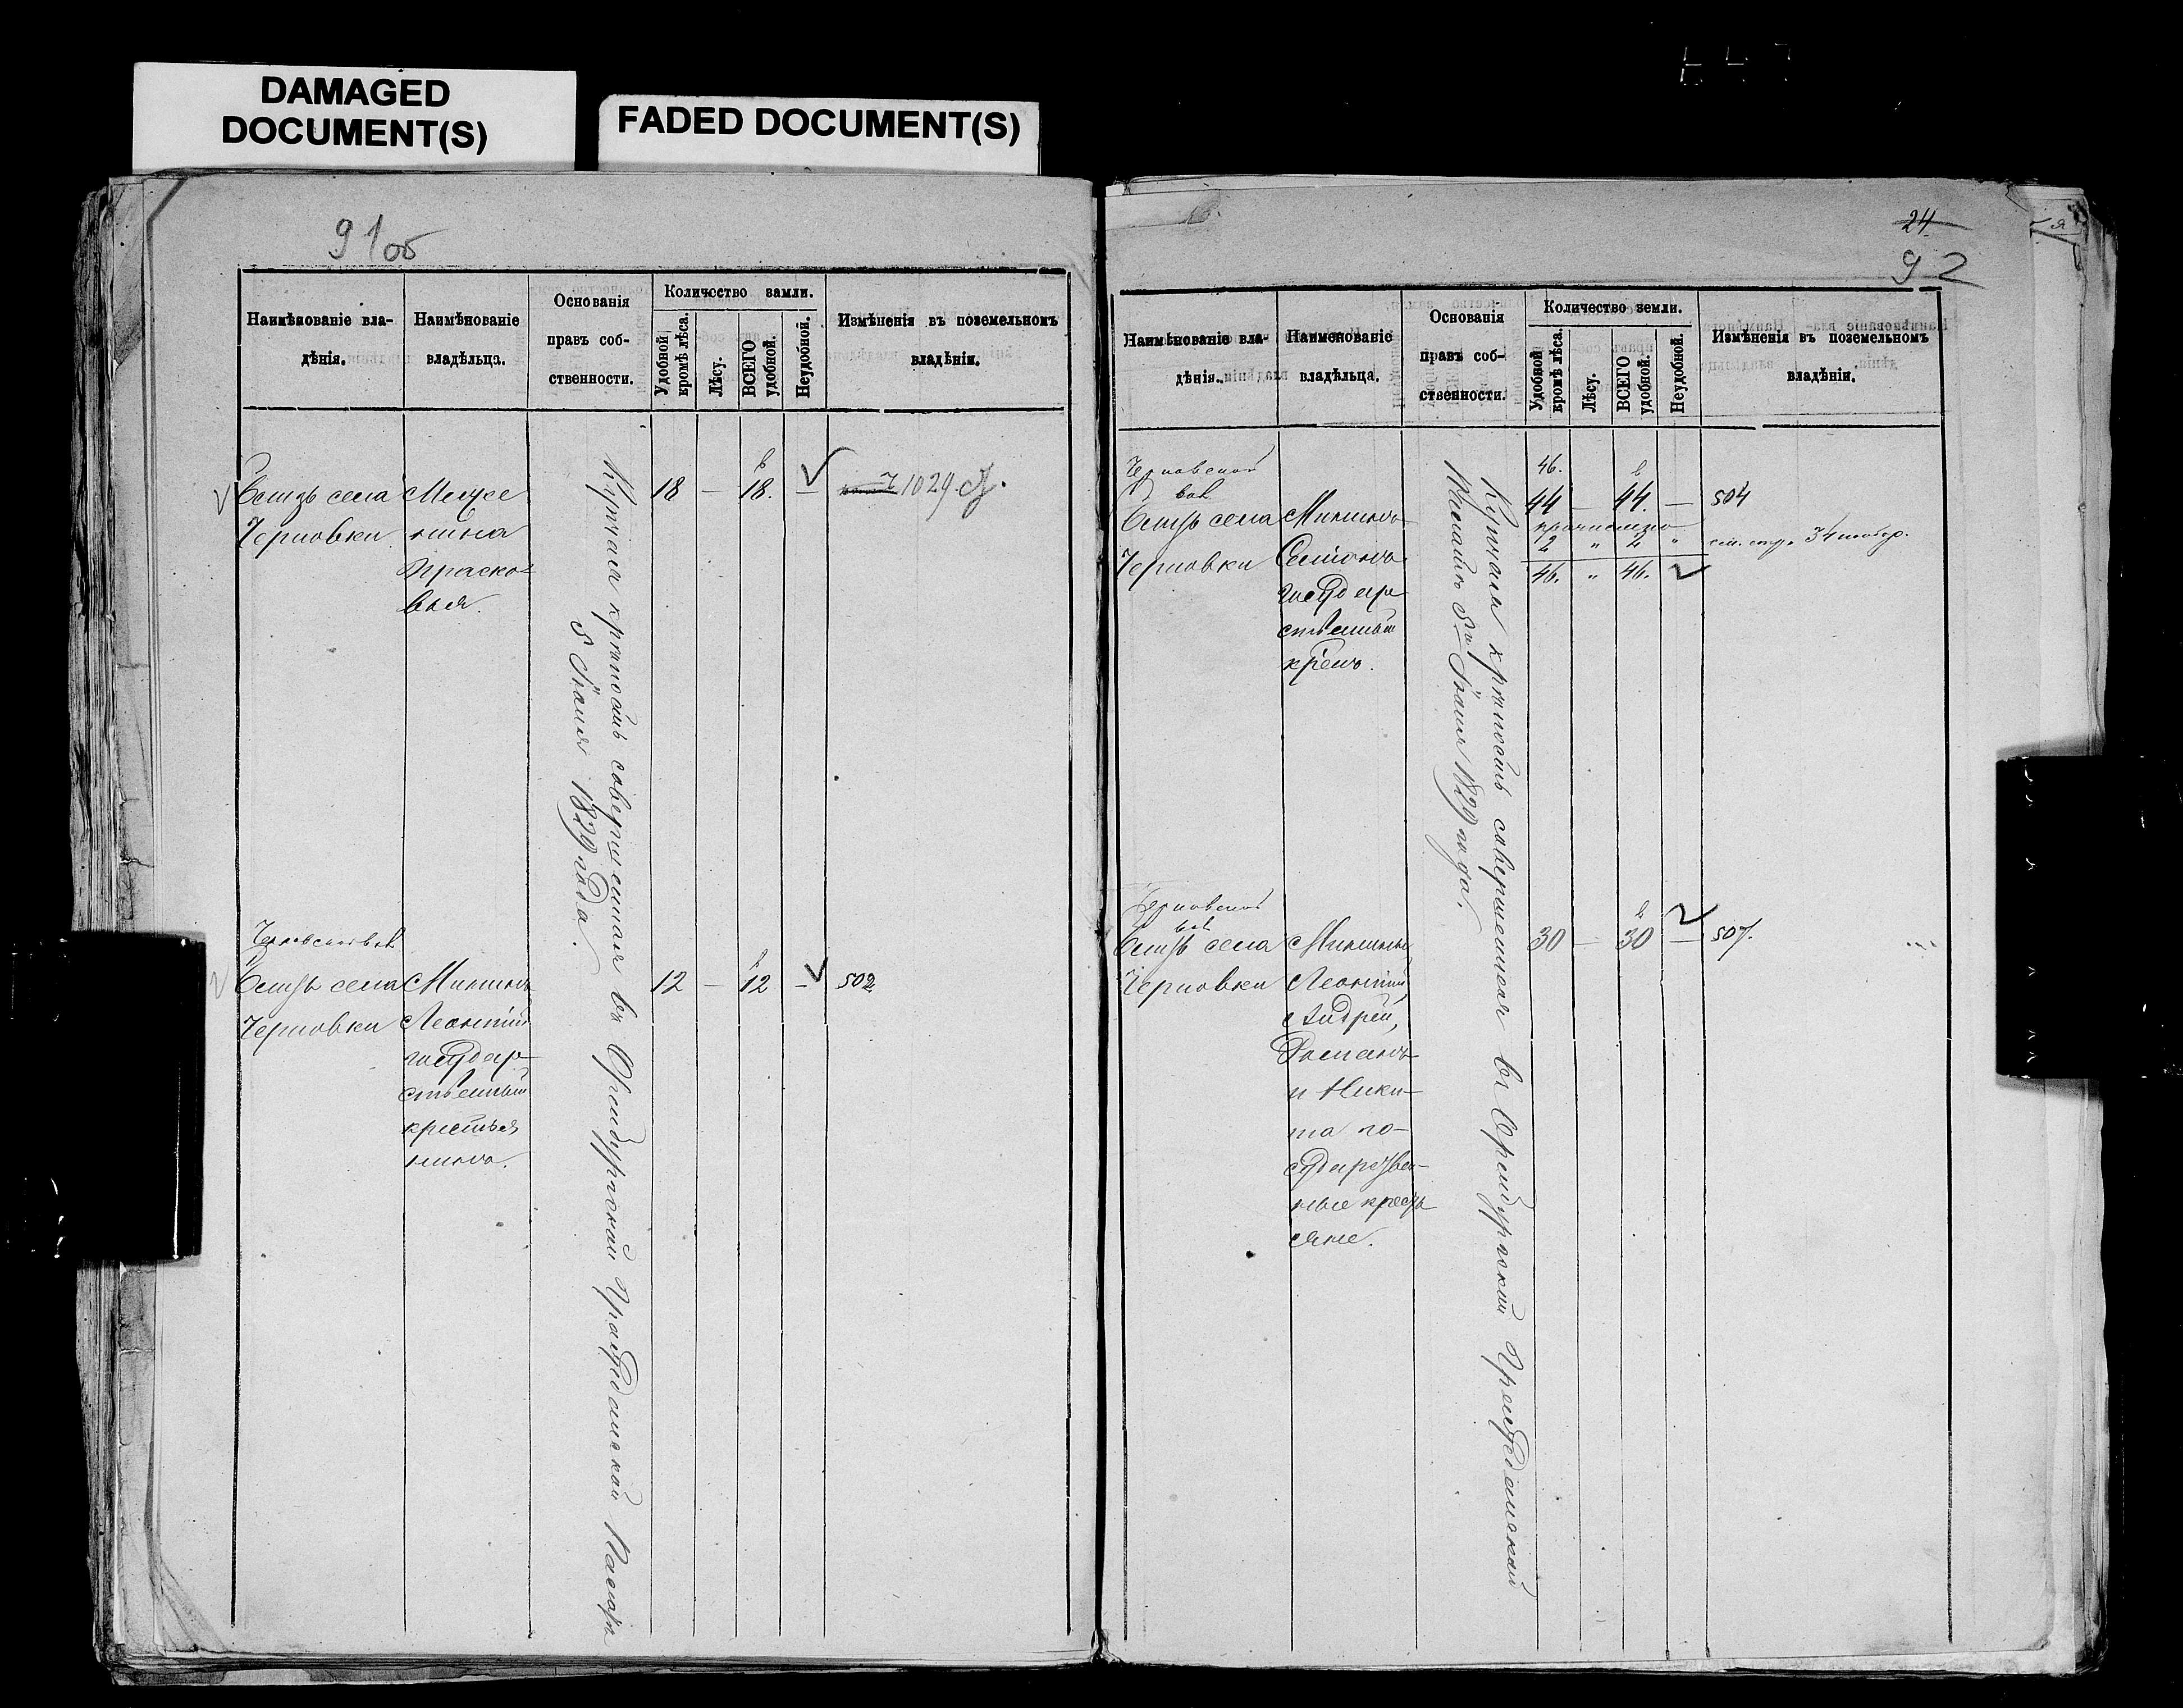 DAMAGED
DOCUMENT(S)
FADED DOCUMENT(S)
91об
Наимѣнованіе вла-
дѣнія.
Наимѣнованіе
владѣльца.
Основанія
правъ соб-
ственности.
Количество земли.
Удобной
кромѣ лѣса.
Лѣсу.
ВСЕГО
удобной.
Неудобной.
Измѣненія въ поземельномъ
владѣніи.
Близь села
Черновки
Праско-
вья.
Купчая крѣпость совершенная въ Оренбургской Гражданской Палатѣ
5 Іюня 1829 года.
18 — 18. —
1029
Близь села
Черновки
Микинъ
Леонтій
государ-
ственный
крестья
нинъ.
12 — 12 —
502
24
92
Наимѣнованіе вла-
дѣнія.
Наименованіе
владѣльца.
Основанія
правъ соб-
ственности.
Количество земли.
Удобной
кромѣ лѣса.
Лѣсу.
ВСЕГО
удобной.
Неудобной.
Измѣненія въ поземельномъ
владѣніи.
Черновской
вол
Близь села
Черновки
Микинъ
Семенъ
государ
ственный
крѣнъ.
Купчая крѣпость совершенная въ Оренбургской Гражданской
Палатѣ 5го Іюня 1829 года.
46.
44 — 44. —
504
причислено
2 " 2 "
см. стр. 34
46. " 46.
Черновской
вол
Близь села
Черновки
Микины
Леонтій
Андрей,
Романъ
и Ники-
та го-
сударствен-
ные кресть
яне.
30 — 30 —
507.